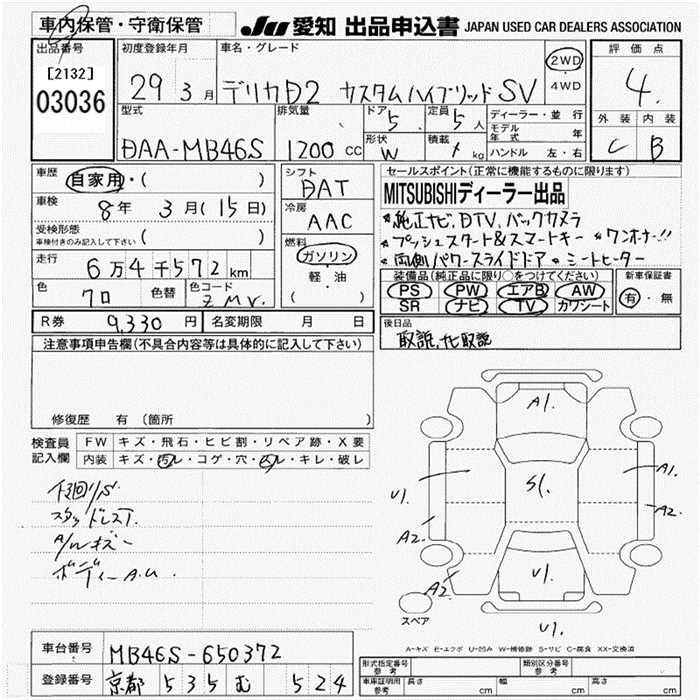 車内保管・守衛保管
JU 愛知 出品申込書 JAPAN USED CAR DEALERS ASSOCIATION
出品番号 [2132] 03036
初度登録年月 29年 3月
車名・グレード デリカD2 カスタムハイブリッドSV
2WD・4WD
評価点 4.
外装 C 内装 B
型式 DAA-MB46S
排気量 1200cc
ドア 5
定員 5人
形状 W
積載 kg
ディーラー・並行
モデル年式 年
ハンドル 左・右
車歴 自家用・( )
車検 8年 3月(15日)
受検形態 車検付きのみ記入して下さい ( )
走行 6万4千572km
色 クロ 色替 色コード ZMV.
シフト DAT
冷房 AAC
燃料 ガソリン・軽・油 ( )
R券 9,330円 名変期限 月 日
セールスポイント(正常に機能するものに限ります)
MITSUBISHIディーラー出品
*純正ナビ,DTV,バックカメラ
*プッシュスタート&スマートキー *ワンオーナー!!
*両側パワースライドドア *シートヒーター
装備品(純正品に限り○をつけてください)
PS PW エアB AW
SR ナビ TV カワシート
新車保証書 有・無
後日品
取説,ナビ取説
注意事項申告欄(不具合内容等は具体的に記入して下さい)
修復歴 有(箇所 )
検査員記入欄
FW キズ・飛石・ヒビ割・リペア跡・X要
内装 キズ・汚レ・コゲ・穴・スレ・キレ・破レ
下廻りS
スタッドレスT.
A/Wキズー
ボディーA.U.
A1.
S1.
U1.
U1.
A2.
A2.
A1.
A2.
U1.
スペア
A-キズ E-エクボ U-凹み W-補修跡 S-サビ C-腐食 XX-交換済
車台番号 MB46S-650372
登録番号 京都 535 む 524
形式指定番号 参考
類別区分番号 参考
車庫証明用参考 長さ cm 幅 cm 高さ cm